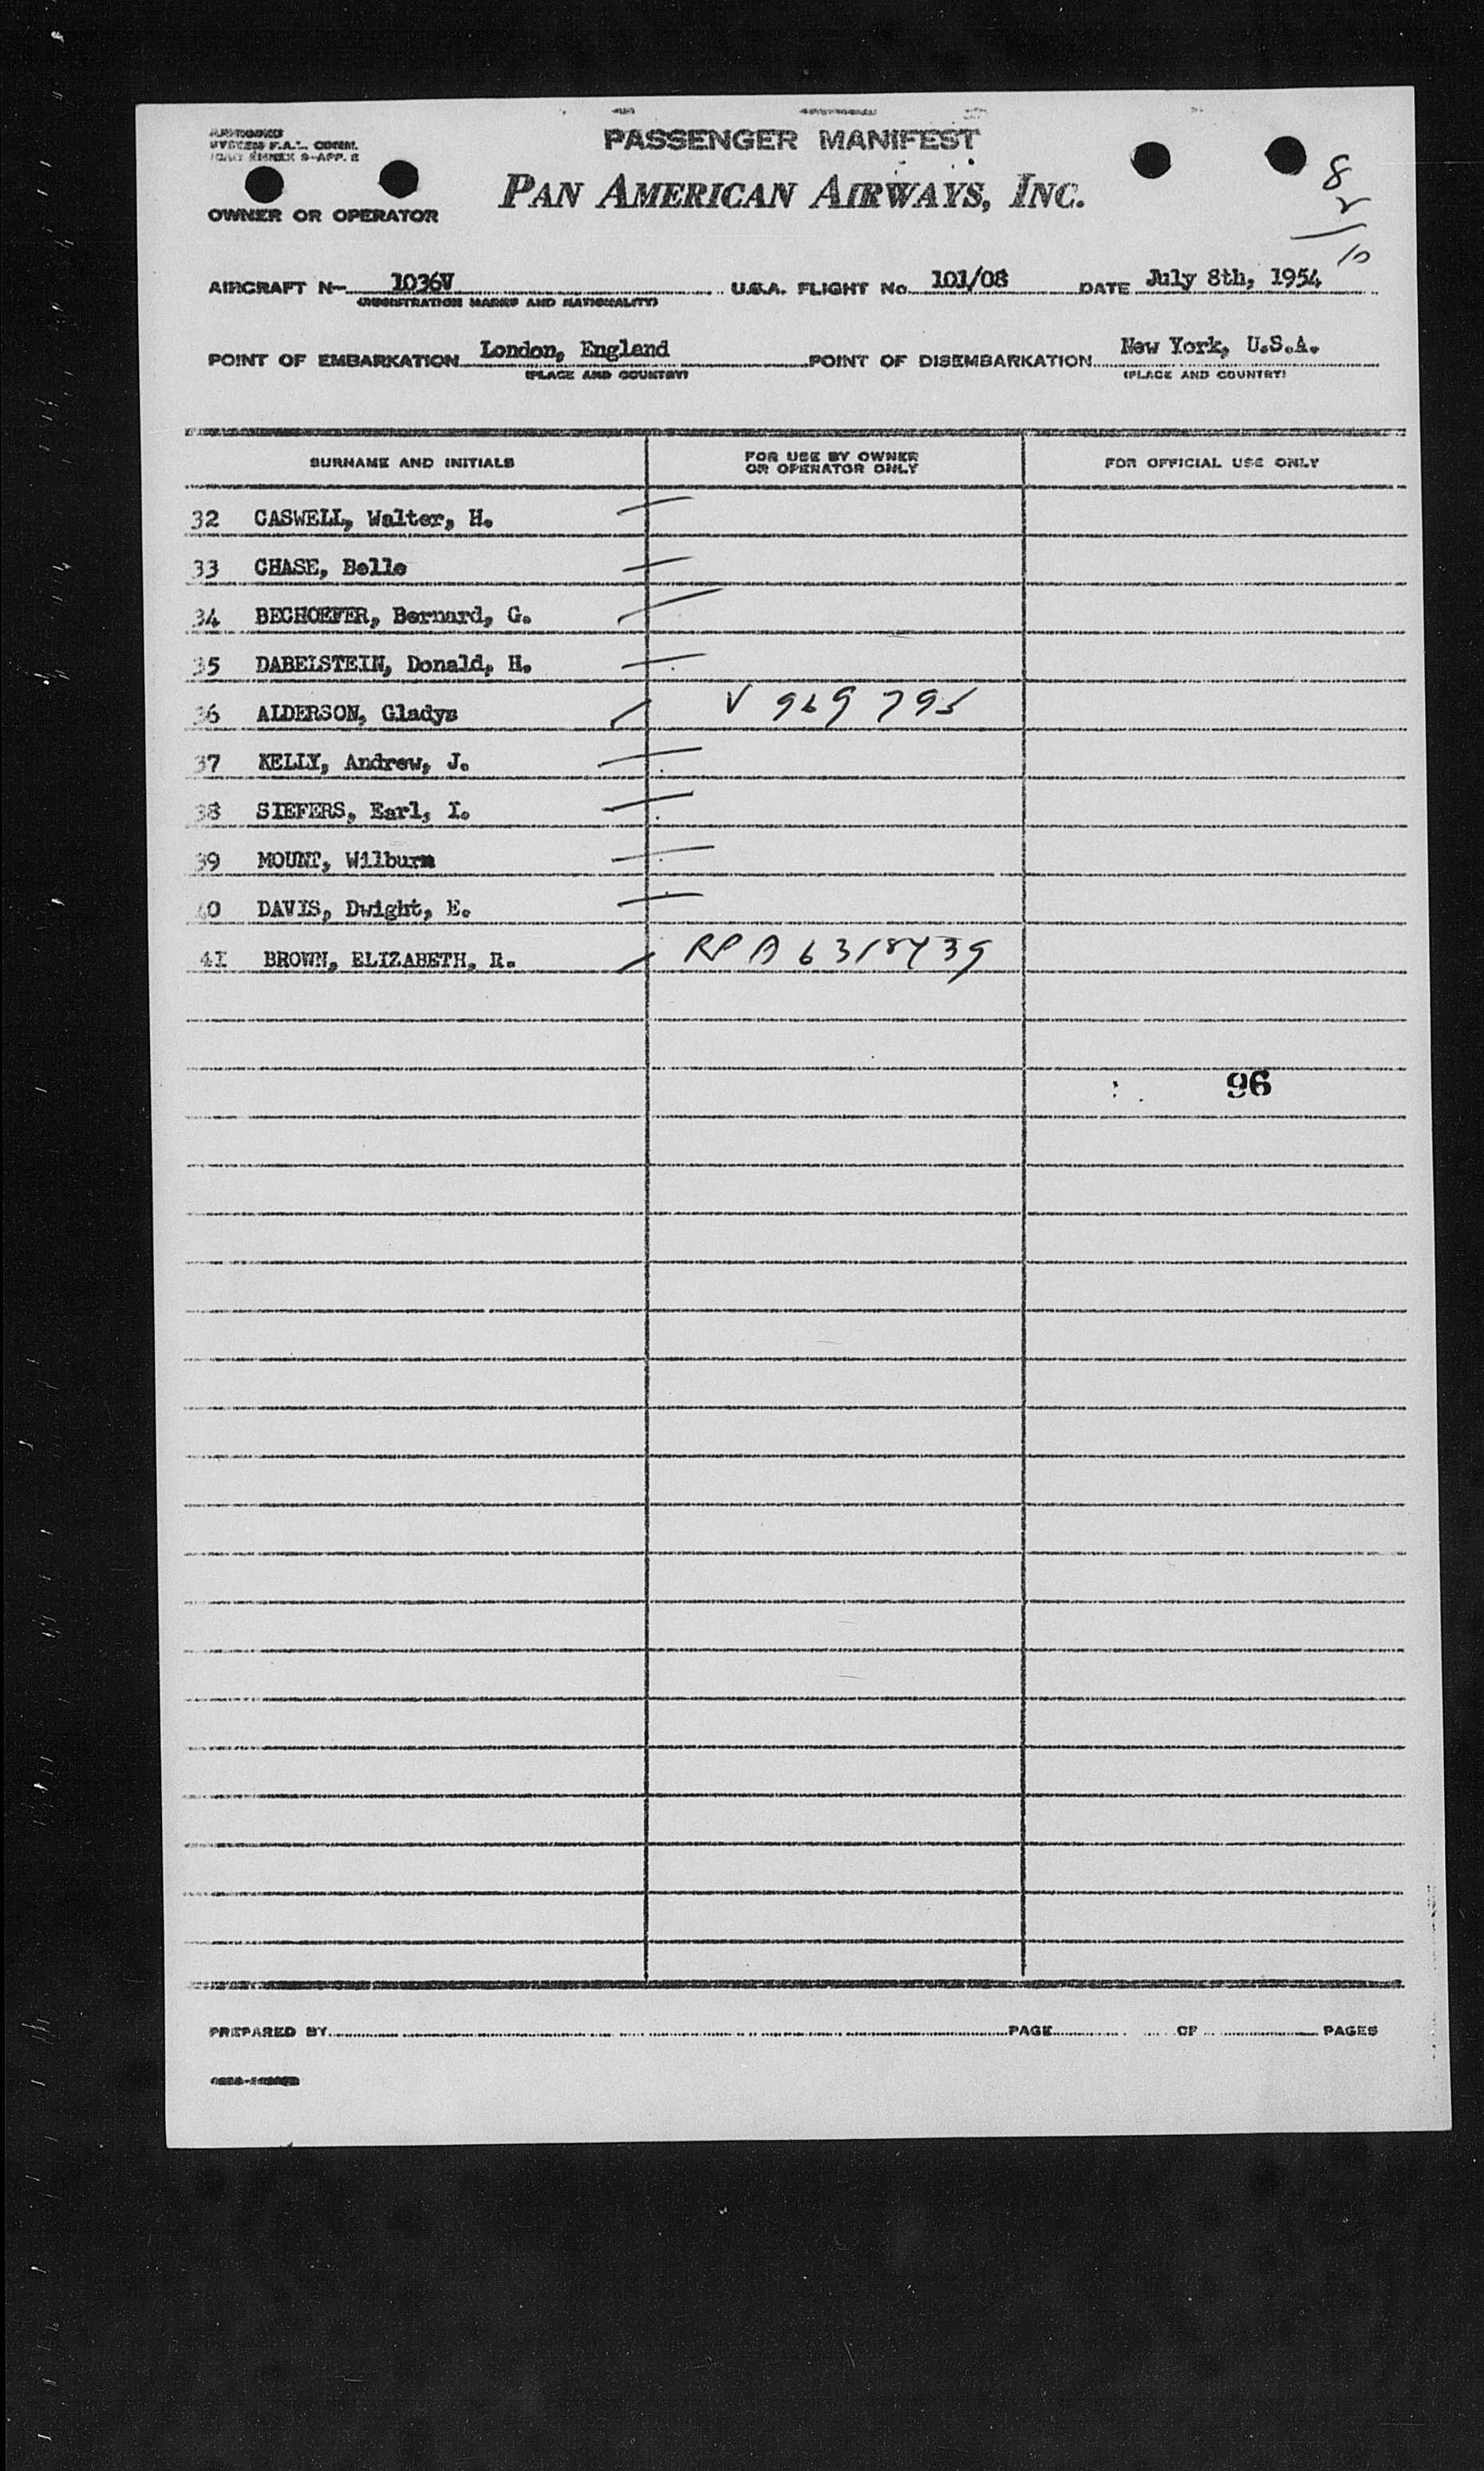 PASSENGER MANIFEST
SYSTEM F.A.L. COMM.
ICAO ANNEX 9-APP. 2
PAN AMERICAN AIRWAYS, INC.
8
2
10
OWNER OR OPERATOR
AIRCRAFT N- 1036V U.S.A. FLIGHT No. 101/08 DATE July 8th, 1954
(REGISTRATION MARKS AND NATIONALITY)
POINT OF EMBARKATION London, England POINT OF DISEMBARKATION New York, U.S.A.
(PLACE AND COUNTRY) (PLACE AND COUNTRY)
SURNAME AND INITIALS FOR USE BY OWNER OR OPERATOR ONLY FOR OFFICIAL USE ONLY
32 CASWELL, Walter, H.
33 CHASE, Belle
34 BECHOEFER, Bernard, G.
35 DABELSTEIN, Donald, H.
36 ALDERSON, Gladys V 969795
37 KELLY, Andrew, J.
38 SIEFERS, Earl, I.
39 MOUNT, Wilburn
40 DAVIS, Dwight, E.
41 BROWN, ELIZABETH, R. RP A6318439
96
PREPARED BY PAGE OF PAGES